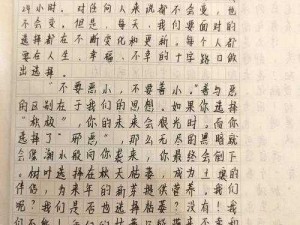 24小时，对任何人来说都不会变，也
不会变。但是，每天，我们要面对的
选择都在不断变化和更新。每个人都
要在人生、幸福、不幸的十字路口做
出选择。
“不要恶小，不要善小。”善与恶
的区别在于我们的思想。如果你选择
，你的未来会很光明。而你
选择了“邪恶”，那么无尽的黑暗就
会像潮水般向你袭来，你最终会倒下
。树叶选择在秋天枯萎，成为土壤的
伴侣，为来年的新芽提供营养。我们
呢？我们是否也选择枯萎？没有！我
们不能！